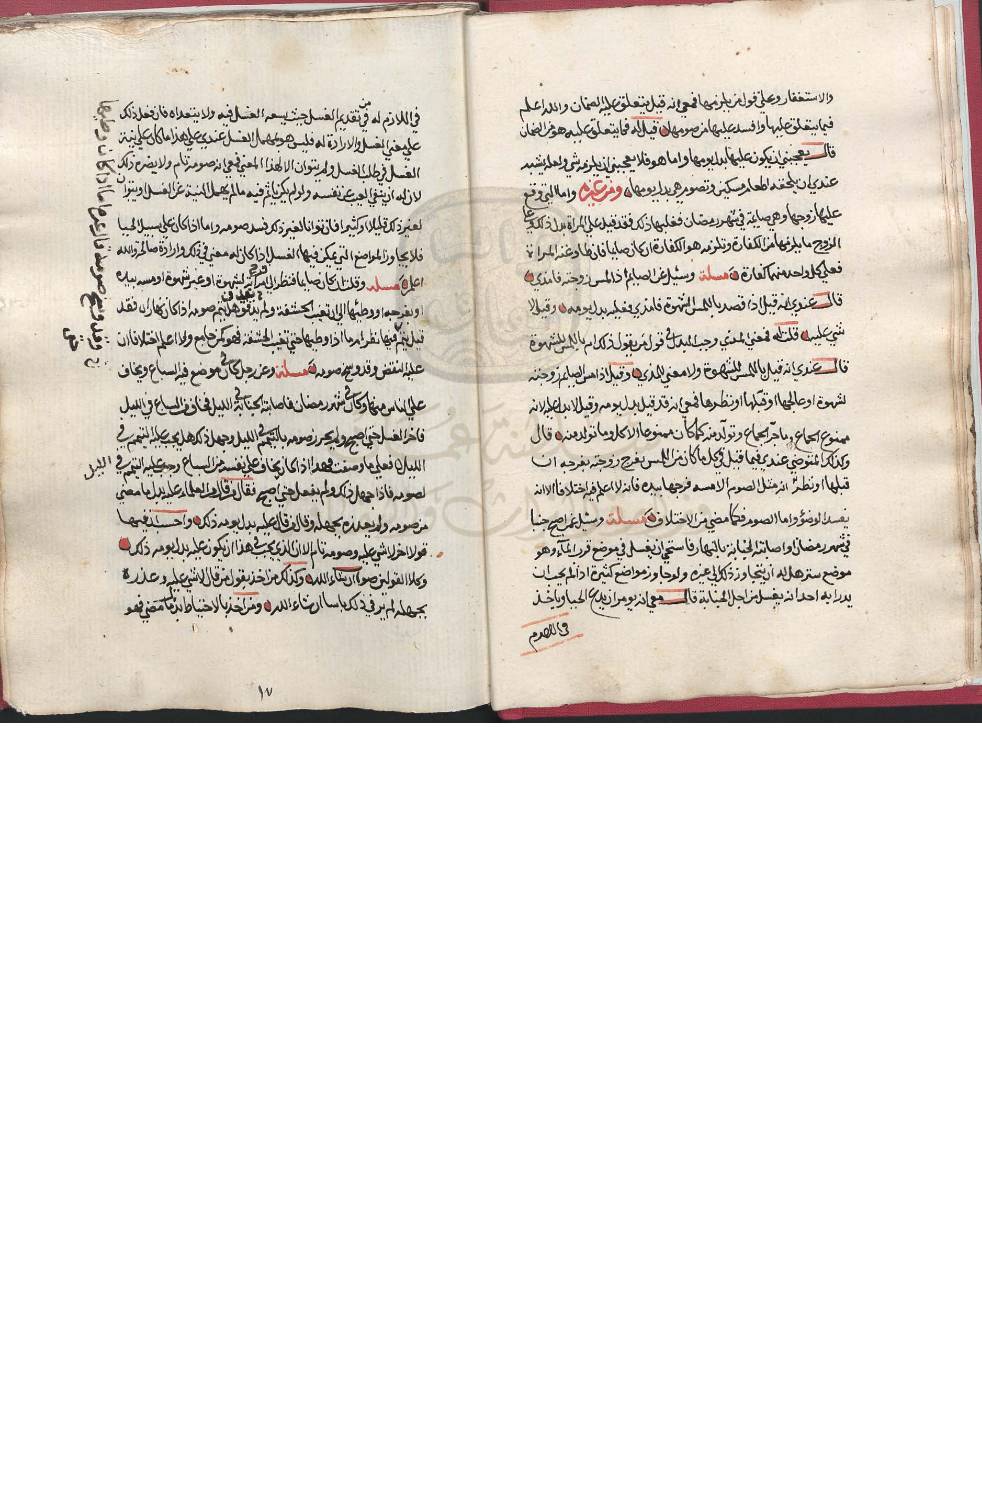 والاستغفار وعلى قول من يلزمها فمعي انه قيل يتعلق عليه الضمان والله اعلم
فيما يتعلق عليها وافسد عليها من صومها قيل له فما يتعلق عليه هو من الضمان
قال يعجبني ان يكون عليها بدل يومها واما هو فلا يعجبني ان يلزمه شي ولعله يشبه
عندي ان يلحقه اطعام مسكين وتصوم هي بدل يومها ومن غيره واما التي وقع
عليها زوجها وهي صايمة في شهر رمضان فغلبها ذلك فقد قيل على المراة بدل ذلك
الزوج ما يلزمها من الكفارة وتلزمه هو الكفارة ان كان صايما فان طاوعته المراة
فعلى كل واحد منهما كفارة مسئلة وسئل عن الصايم اذا لمس زوجته فامذى
قال عندي انه قيل اذا قصد باللمس الشهوة فامذى فعليه بدل يومه وقيل لا
شي عليه قلت له فمعنى المذي وجب البدل في قول من يقول ذلك ام باللمس للشهوة
قال عندي انه قيل باللمس للشهوة ولا معنى للمذي وقيل اذا مس الصايم زوجته
لشهوة او عالجها او قبلها او نظرها فمعي انه قد قيل بدل يومه وقيل لا بدل عليه لانه
ممنوع الجماع وما جر الجماع وتولد منه كما كان ممنوعا الاكل وما تولد منه قال
وكذلك المتوضي عندي فيما قيل في كل ما كان من اللمس بفرج زوجته بفرجه ان
قبلها او نظر انه مثل الصوم الا مسه فرجها بيده فانه لا اعلم فيه اختلافا الا انه
يفسد الوضوء واما الصوم فكما مضى من الاختلاف مسئلة وسئل عمن اصبح جنبا
في شهر رمضان او اصابته الجنابة بالنهار فاستحى ان يغسل في موضع قرب الماء وهو
موضع ستر هل له ان يتجاوز ذلك الى غيره ولو جاوز مواضع كثيرة اذا لم يحب ان
يدرا به احد انه يغسل من اجل الجنابة قال معي انه يومر ان يدع الحيا وياخذ
في اللازم
في اللازم له من تقديم الغسل حيث يسعه الغسل فيه ولا يتعداه فان فعل ذلك
على معنى الغسل والارادة له فليس هو بمهمل الغسل عندي على هذا ما كان على نية
الغسل في طلب الغسل ولم يتوان الا لهذا المعنى فمعي انه صومه تام ولا يضره ذلك
لان له ان ينفي العيب عن نفسه ولو لم يكن ياثم فيه ما لم يهمل النية عن الغسل ويتوان
لغير ذلك قليلا او كثيرا فان توانا لغير ذلك فسد صومه واما اذا كان على سبيل الحيا
فلا يجاوز المواضع التي يمكن فيها الغسل اذا كان له معنى في ذلك وارادة صالحة والله
اعلم مسئلة وقلت ان كان صايما فنظر الى فرج امراته لشهوة او غير شهوة او مسه بيده
او بفرجه او وطئها الى ان تغيب الحشفة ولم يدفق هل يتم صومه اذا كان نهارا فقد
قيل يتم فيها نظرا واما اذا وطيها حتى تغيب الحشفة فهو كمن جامع ولا اعلم اختلافا ان
عليه النقض وقد وسخ صومه مسئلة وعن رجل كان في موضع فيه السباع ويخاف
على الناس منها وكان في شهر رمضان فاصابته الجنابة في الليل فخاف من السباع في الليل
فاخر الغسل حتى اصبح ولم يحرز صومه بالتيمم في الليل وجهل ذلك هل يجب عليه التيمم في
الليل فعلى ما وصفت فهذا اذا كان يخاف على نفسه من السباع وجب عليه التيمم في الليل
لصومه فاذا جهل ذلك ولم يفعل حتى اصبح فقال من قال من العلماء عليه بدل ما مضى
من صومه ولم يعذره بجهله وقال من قال عليه بدل يومه ذلك واحسب ان فيها
قولا اخر لا شي عليه وصومه تام الا ان الذي يجب في هذا ان يكون عليه بدل يومه ذلك
وكلا القولين صواب ان شاء الله وكذلك من اخذ بقول من قال لا شي عليه وعذره
بجهله لم ير في ذلك باسا ان شاء الله ومن اخذ بالاحتياط بدل ما مضى فهو
١٧